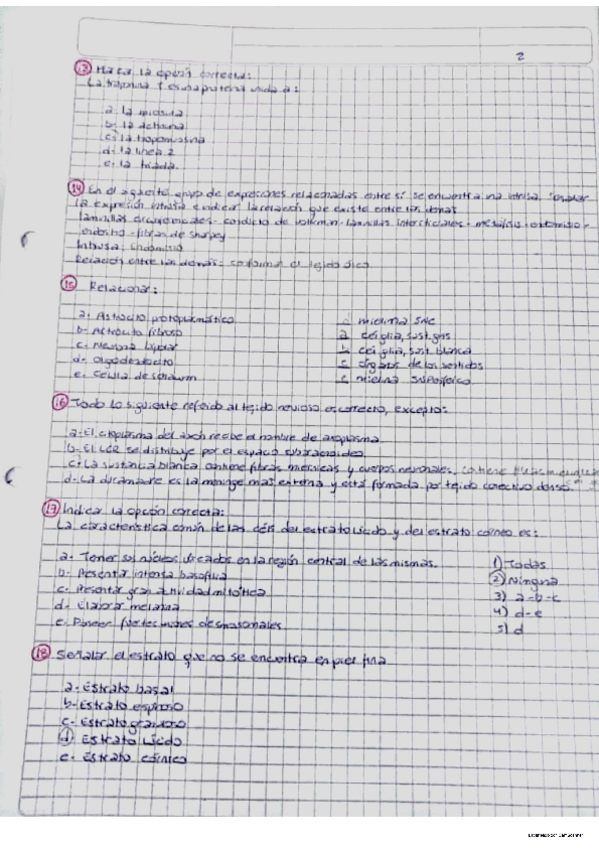 2
13 Marca la opción correcta:
La troponina T es una proteína unida a:
a- la miosina
b- la actina
c- la tropomiosina
d- la línea Z
e- la triada.
14 En el siguiente grupo de expresiones relacionadas entre sí se encuentra una intrusa. Señalar
la expresión intrusa e indicar la relación que existe entre las demás
laminillas circunferenciales - conducto de volkman - laminillas intersticiales - - endomisio -
endostio - fibras de sharpey
Intrusa: Endomisio
Relación entre las demás: conforma el tejido óseo
15 Relacionar:
a- Astrocito protoplasmático
b- Astrocito fibroso
c- Neurona bipolar
d- Oligodendrocito
e- Célula de schwann
d mielina SNC
a cél glia, sust. gris
b cél glia, sust. blanca
c órganos de los sentidos
e mielina SNPeriférico
16 Todo lo siguiente referido al tejido nervioso es correcto, excepto:
a- El citoplasma del axón recibe el nombre de axoplasma
b- El LCR se distribuye por el espacio subaracnoideo
c- La sustancia blanca contiene fibras mielínicas y cuerpos neuronales. contiene
d- La duramadre es la meninge mas externa y está formada por tejido conectivo denso.
17 Indicar la opción correcta:
La característica común de las céls del estrato lúcido y del estrato córneo es:
a- Tener sus núcleos ubicados en la región central de las mismas.
b- Presentar intensa basofilia
c- Presentar gran actividad mitótica
d- Elaborar melanina
e- Poseer fuertes uniones desmosomales
1) Todas
2) Ninguna
3) a-b-c
4) d-e
5) d
18 Señalar el estrato que no se encuentra en piel fina
a- Estrato basal
b- Estrato espinoso
c- Estrato granuloso
d- Estrato lúcido
e- Estrato córneo